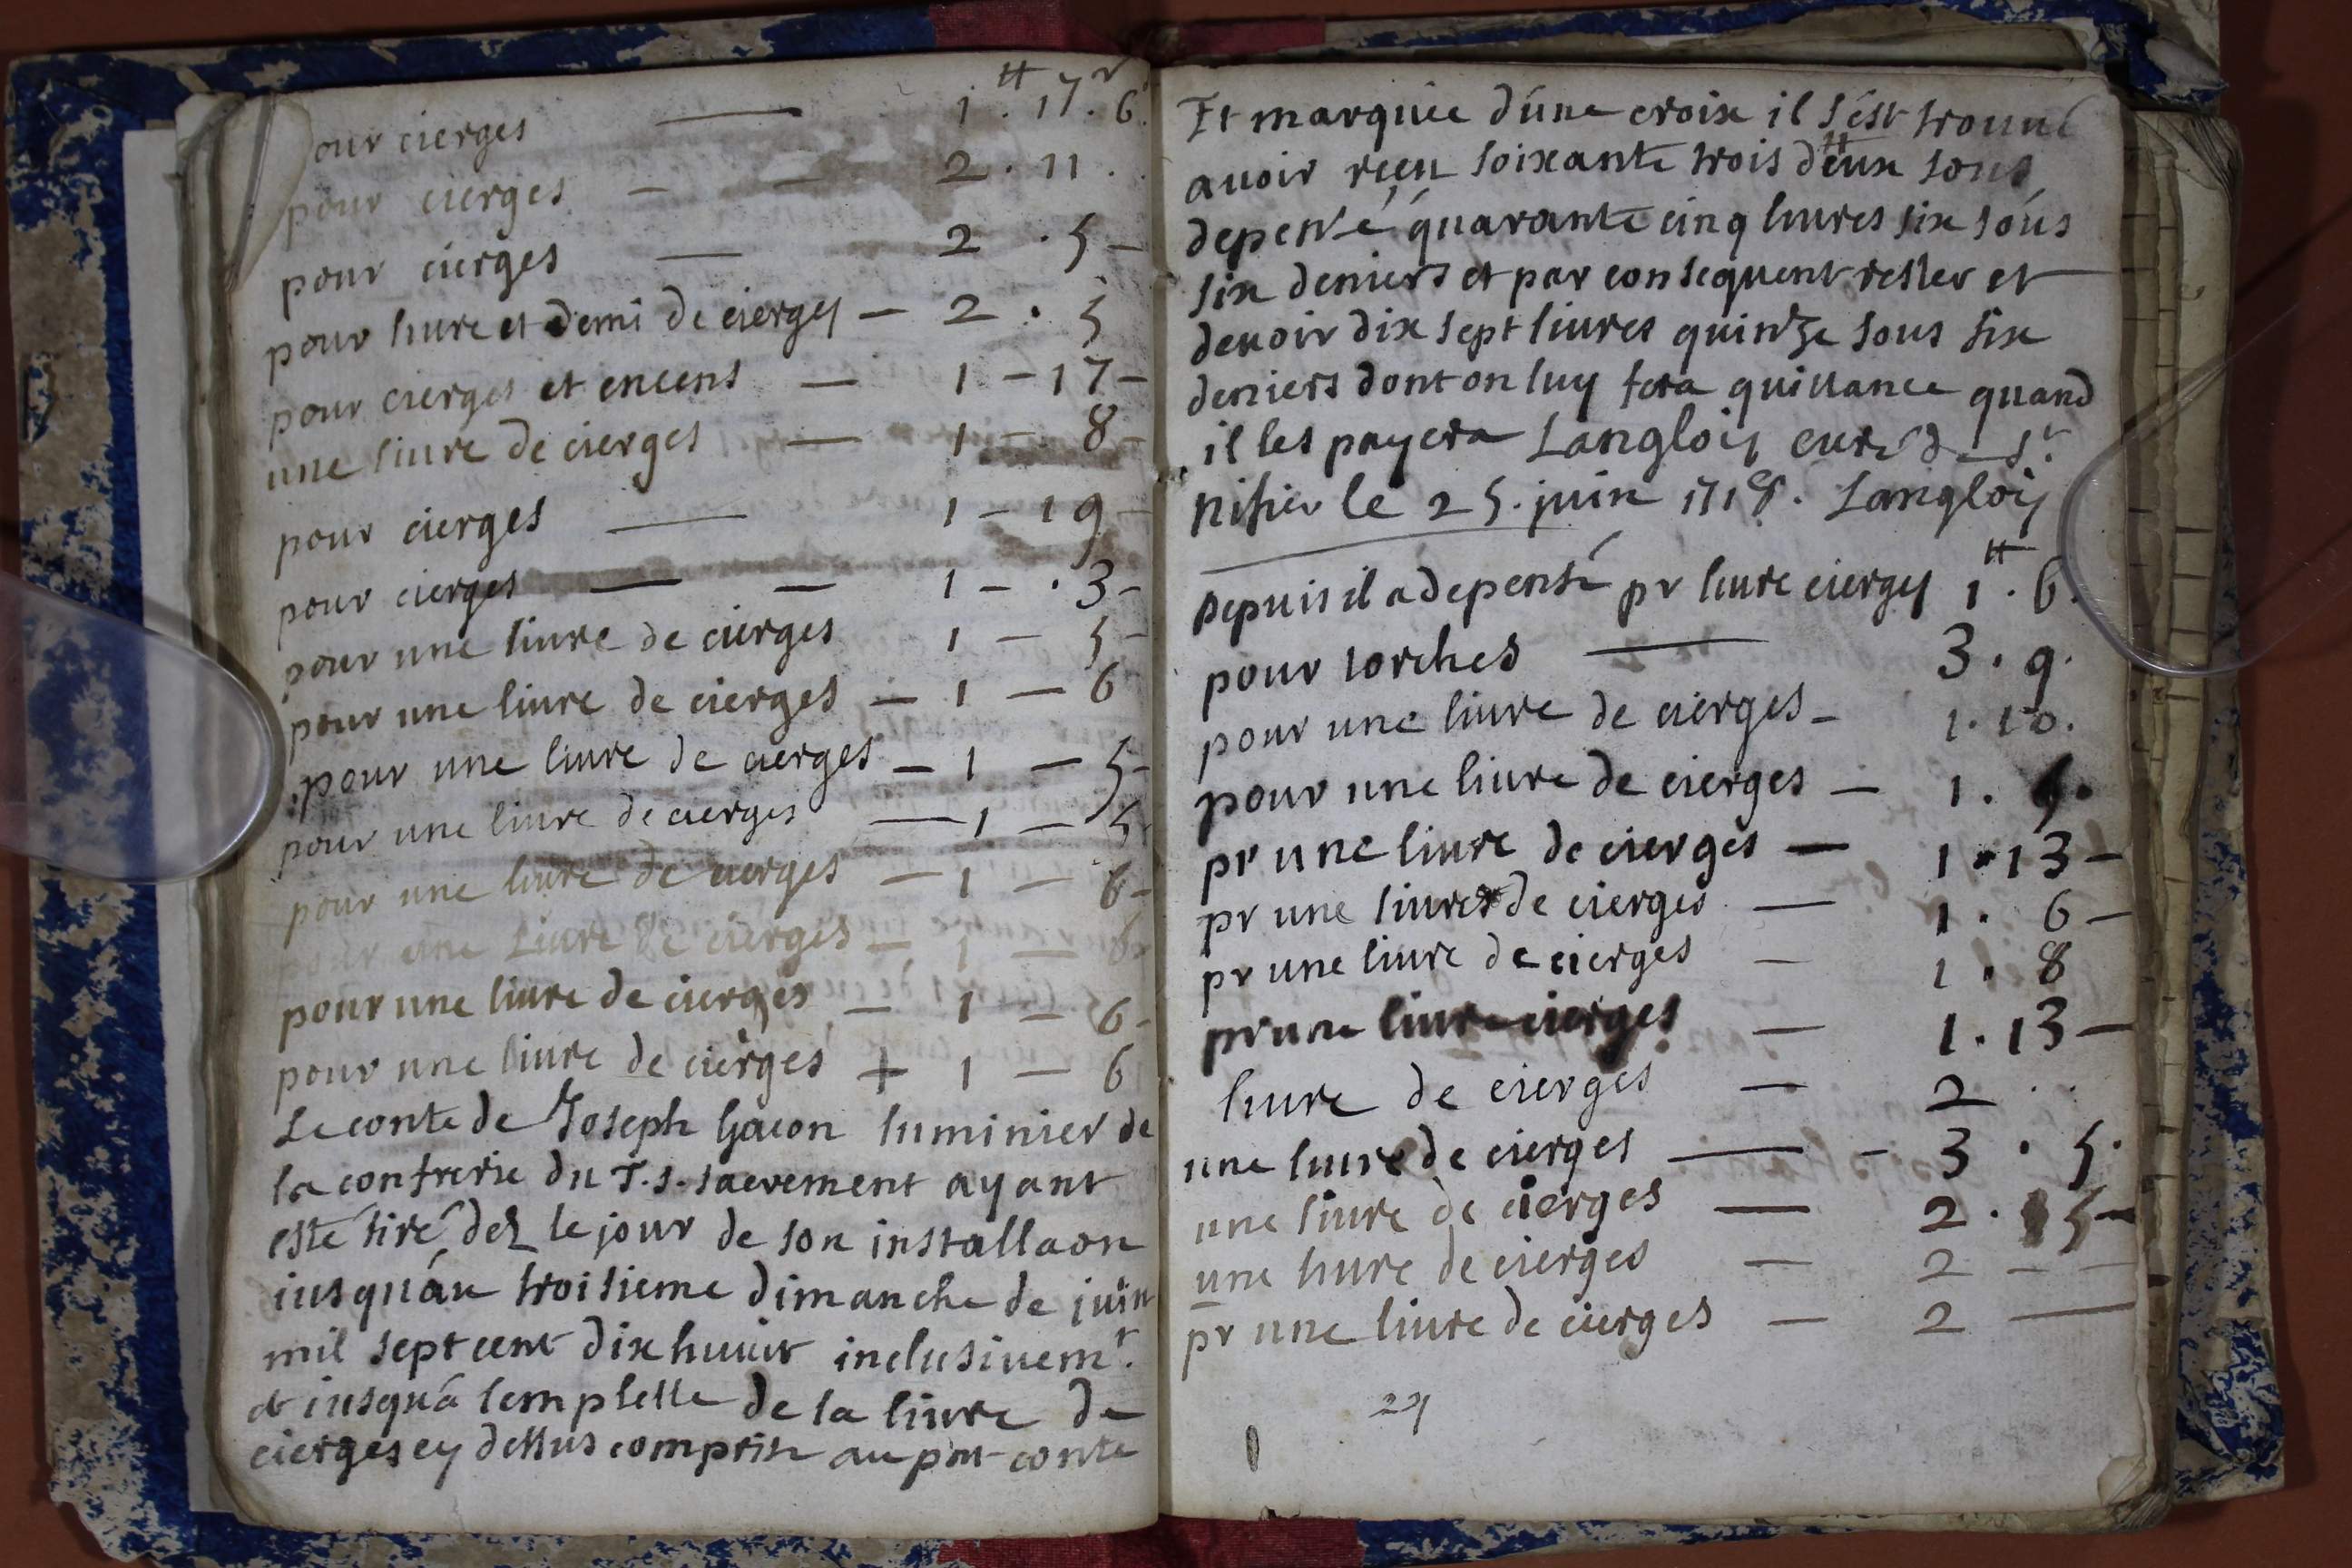 pour cierges — 1 ₶. 17. 6
pour cierges — — 2 . 11 .
pour cierges — 2 . 5 —
pour liure et demi de cierges — 2 . 5
pour cierges et encens — 1 — 17 —
une liure de cierges — 1 — 8 —
pour cierges — 1 — 19 —
pour cierges — — 1 — . 3 —
pour une liure de cierges 1 — 5 —
pour une liure de cierges — 1 — 6
pour une liure de cierges — 1 — 5 —
pour une liure de cierges — 1 — 5
pour une liure de cierges — 1 — 6 —
pour une Liure de cierges — 1 — 6
pour une liure de cierges — 1 — 6 —
pour une liure de cierges + 1 — 6
Le conte de Joseph Gacon luminier de
la confrerie du T. S. sacrement ayant
esté tiré dez le jour de son installaon
iusqu'au troisieme dimanche de juin
mil sept cent dix huict inclusivemt.
et iusqu'a lemplette de la liure de
cierges cy dessus comprise au pnt conte
Et marquée d'une croix il s'est trouué
auoir reçu soixante trois ₶ deux sous
depensé quarante cinq liures six sous
six deniers et par consequent rester et
deuoir dix sept liures quinze sous six
deniers dont on luy fera quittance quand
il les payera Langlois curé de St.
nisier le 25. juin 1718. Langlois
Depuis il a depensé pr liure cierges 1 ₶. 6.
pour torches — 3 . 9.
pour une liure de cierges — 1. 10.
pour une liure de cierges — 1. 5.
pr une liure de cierges — 1 . 13 —
pr une liure de cierges — 1 . 6 —
pr une liure de cierges — 1 . 8
pr une liure cierges — 1. 13 —
liure de cierges — 2 . .
une liure de cierges — — 3 . 5 .
une liure de cierges — 2 . 5 —
une liure de cierges — 2 — —
pr une liure de cierges — 2 —